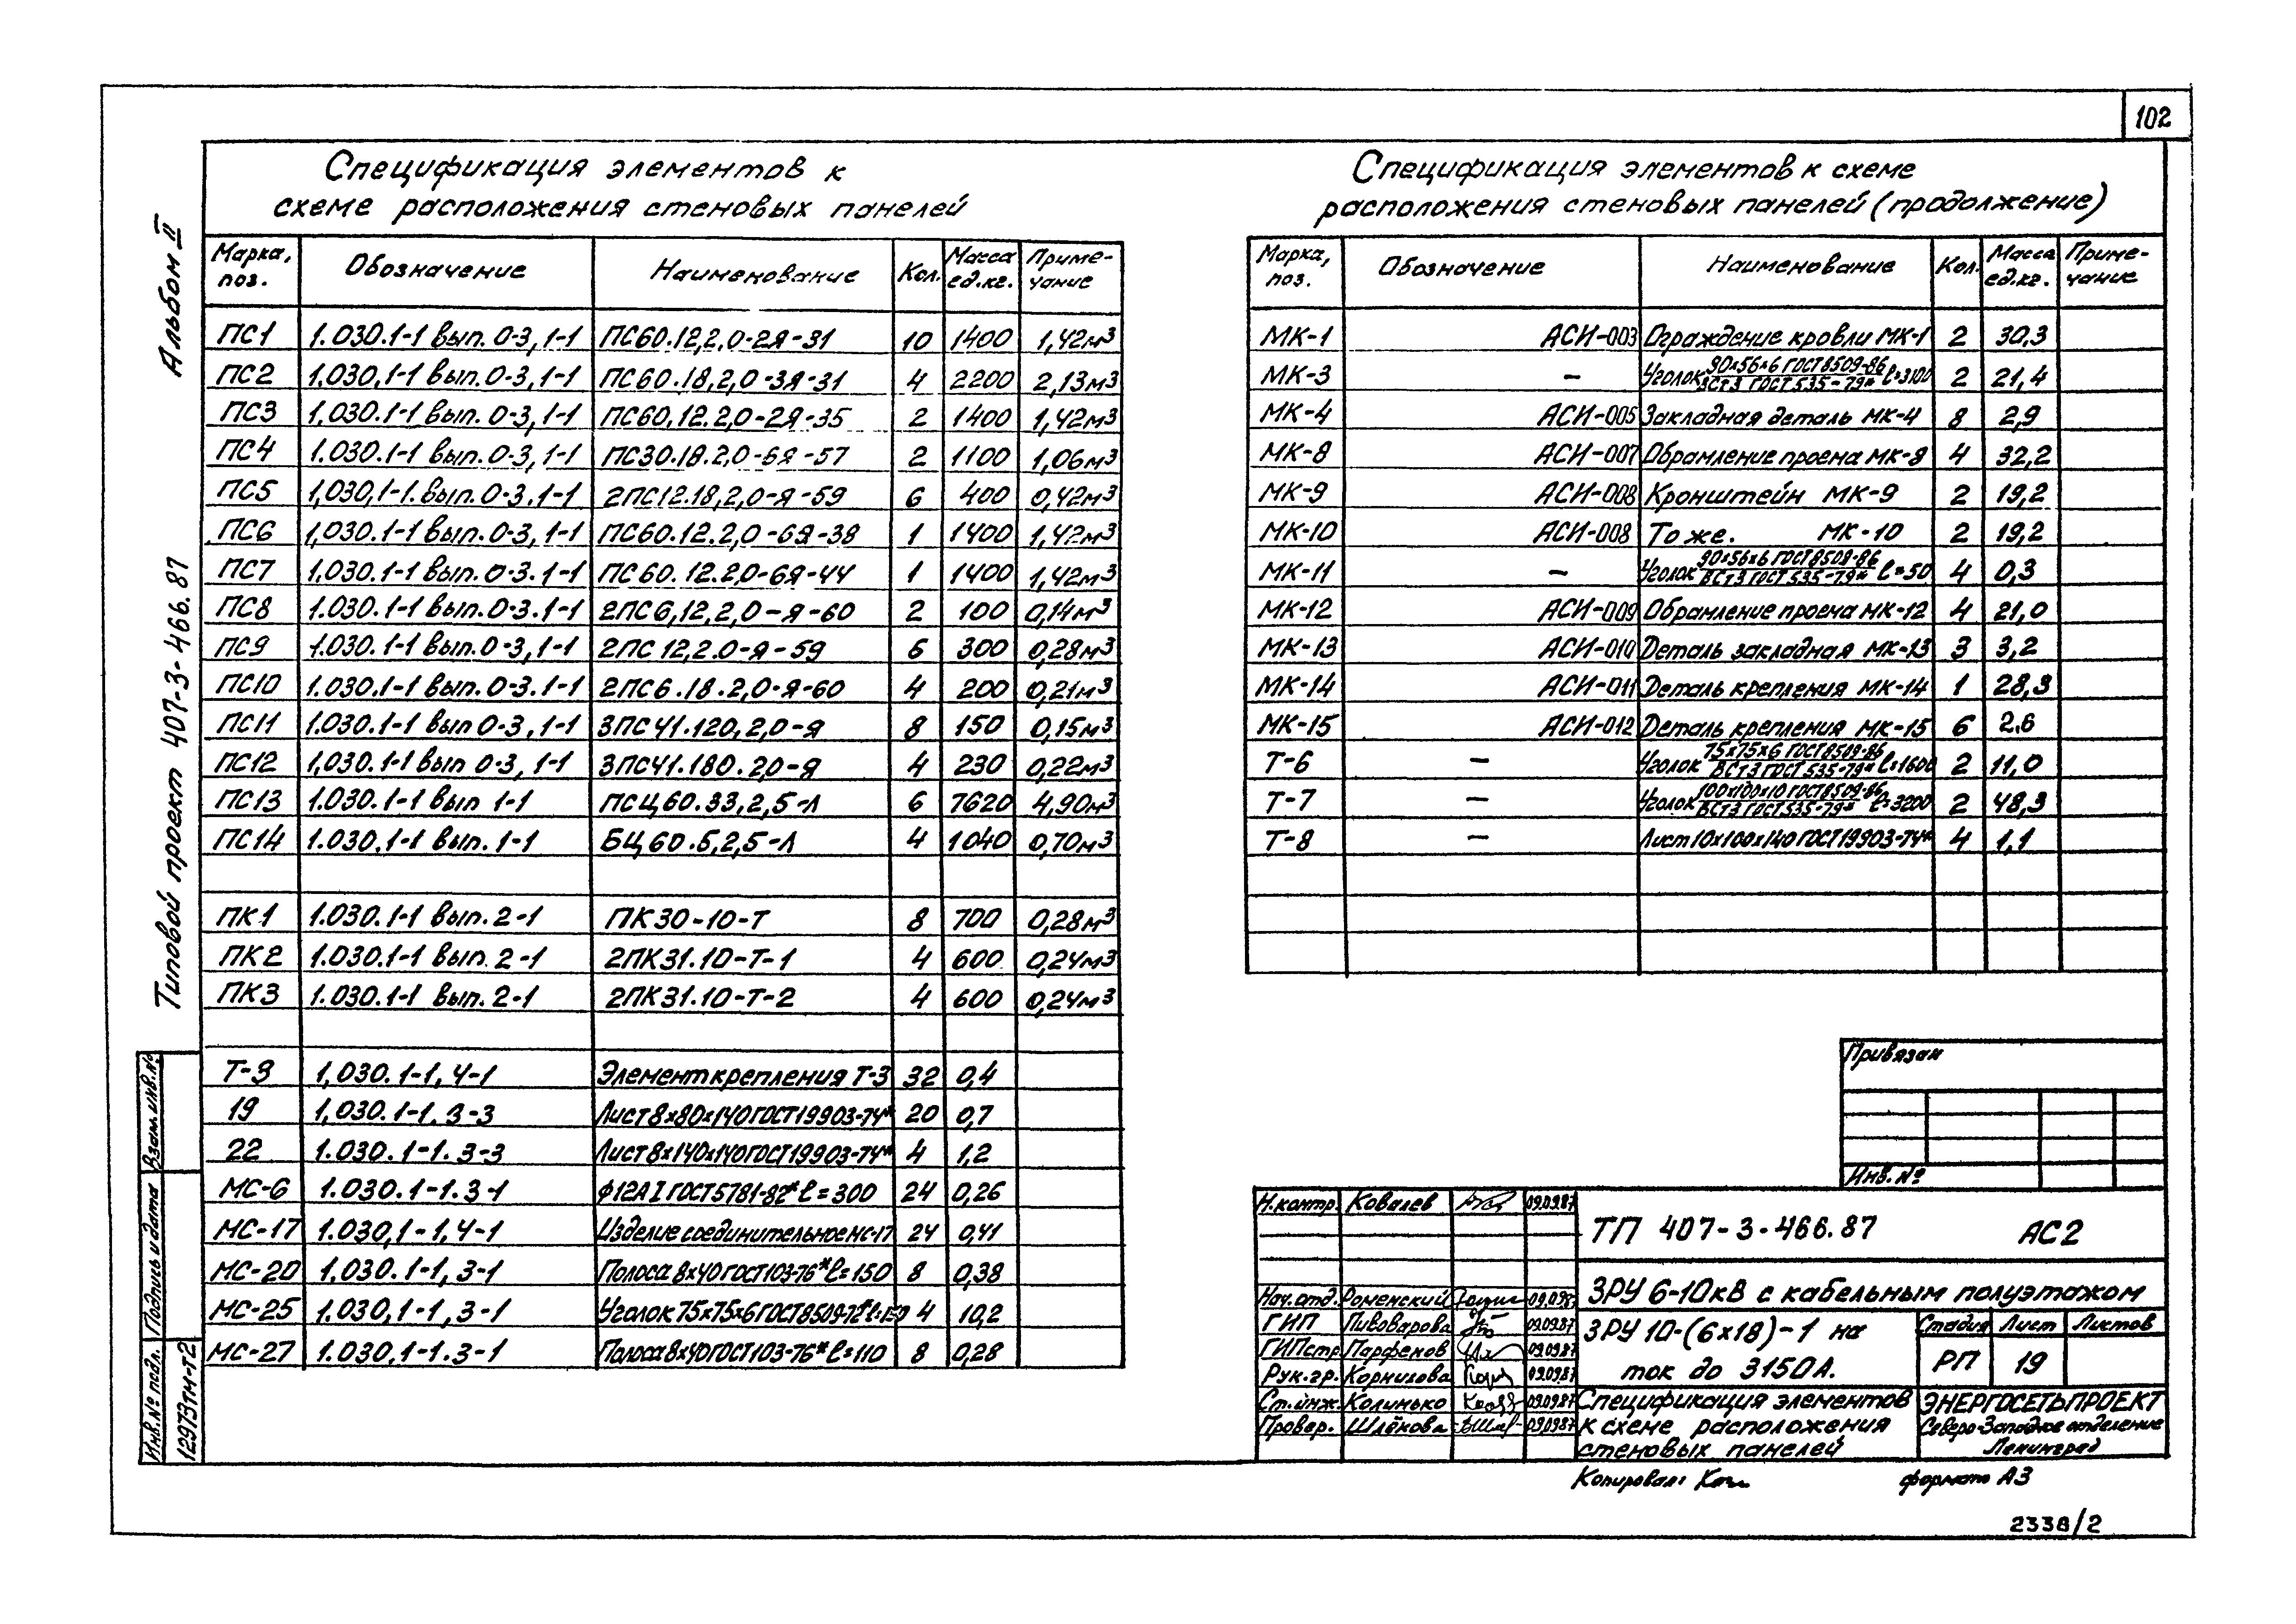 102
Альбом II
Типовой проект 407-3-466.87
Спецификация элементов к
схеме расположения стеновых панелей
Марка, поз. Обозначение Наименование Кол. Масса ед.кг. Приме-чание
ПС1 1.030.1-1 вып. 0-3, 1-1 ПС60.12,2,0-2Я-31 10 1400 1,42м³
ПС2 1.030,1-1 вып. 0-3, 1-1 ПС60.18,2,0-3Я-31 4 2200 2,13м³
ПС3 1.030.1-1 вып. 0-3, 1-1 ПС60,12.2,0-2Я-35 2 1400 1,42м³
ПС4 1.030.1-1 вып. 0-3, 1-1 ПС30.18.2,0-6Я-57 2 1100 1,06м³
ПС5 1,030,1-1. вып. 0-3.1-1 2ПС12.18,2,0-Я-59 6 400 0,42м³
ПС6 1,030.1-1 вып. 0-3, 1-1 ПС60.12.2,0-6Я-38 1 1400 1,42м³
ПС7 1,030.1-1 вып. 0-3.1-1 ПС60.12.2,0-6Я-44 1 1400 1,42м³
ПС8 1.030.1-1 вып. 0-3.1-1 2ПС6,12,2,0-Я-60 2 100 0,14м³
ПС9 1.030.1-1 вып. 0-3, 1-1 2ПС12,2.0-Я-59 6 300 0,28м³
ПС10 1.030.1-1 вып. 0-3.1-1 2ПС6.18.2,0-Я-60 4 200 0,21м³
ПС11 1.030.1-1 вып 0-3, 1-1 3ПС41.120,2,0-Я 8 150 0,15м³
ПС12 1,030.1-1 вып 0-3, 1-1 3ПС41.180.2,0-Я 4 230 0,22м³
ПС13 1.030.1-1 вып 1-1 ПСЦ60.33,2,5-Л 6 7620 4,90м³
ПС14 1.030.1-1 вып. 1-1 БЦ60.5,2,5-Л 4 1040 0,70м³
ПК1 1.030.1-1 вып. 2-1 ПК30-10-Т 8 700 0,28м³
ПК2 1.030.1-1 вып. 2-1 2ПК31.10-Т-1 4 600 0,24м³
ПК3 1.030.1-1 вып. 2-1 2ПК31.10-Т-2 4 600 0,24м³
Т-3 1,030.1-1, 4-1 Элемент крепления Т-3 32 0,4
19 1,030.1-1. 3-3 Лист 8х80х140 ГОСТ19903-74* 20 0,7
22 1.030.1-1.3-3 Лист 8х140х140 ГОСТ19903-74* 4 1,2
МС-6 1.030.1-1.3-1 ф12АI ГОСТ5781-82* ℓ=300 24 0,26
МС-17 1.030,1-1,4-1 Изделие соединительное МС-17 24 0,41
МС-20 1,030.1-1,3-1 Полоса 8х40 ГОСТ103-76* ℓ=150 8 0,38
МС-25 1.030,1-1,3-1 Уголок 75х75х6 ГОСТ8509-72* ℓ=150 4 10,2
МС-27 1.030,1-1.3-1 Полоса 8х40 ГОСТ103-76* ℓ=110 8 0,28
Спецификация элементов к схеме
расположения стеновых панелей (продолжение)
Марка, поз. Обозначение Наименование Кол. Масса ед.кг. Приме-чание
МК-1 АСИ-003 Ограждение кровли МК-1 2 30,3
МК-3 – Уголок 90х56х6 ГОСТ8509-86 / ВСт3 ГОСТ535-79* ℓ=3100 2 21,4
МК-4 АСИ-005 Закладная деталь МК-4 8 2,9
МК-8 АСИ-007 Обрамление проема МК-8 4 32,2
МК-9 АСИ-008 Кронштейн МК-9 2 19,2
МК-10 АСИ-008 То же. МК-10 2 19,2
МК-11 – Уголок 90х56х6 ГОСТ8509-86 / ВСт3 ГОСТ535-79* ℓ=50 4 0,3
МК-12 АСИ-009 Обрамление проема МК-12 4 21,0
МК-13 АСИ-010 Деталь закладная МК-13 3 3,2
МК-14 АСИ-011 Деталь крепления МК-14 1 28,3
МК-15 АСИ-012 Деталь крепления МК-15 6 2.6
Т-6 – Уголок 75х75х6 ГОСТ8509-86 / ВСт3 ГОСТ535-79* ℓ=1600 2 11,0
Т-7 – Уголок 100х100х10 ГОСТ8509-86 / ВСт3 ГОСТ535-79* ℓ=3200 2 48,3
Т-8 – Лист 10х100х140 ГОСТ19903-74* 4 1,1
Привязан
Инв.№
Н.контр. Ковалев 09.09.87
Нач.отд. Роменский 09.09.87
ГИП Пивоварова 09.09.87
ГИПстр. Парфенов 09.09.87
Рук.гр. Корнилова 09.09.87
Ст.инж. Колинько 09.09.87
Провер. Шлёнова 09.09.87
ТП 407-3-466.87 АС2
ЗРУ 6-10кВ с кабельным полуэтажом
ЗРУ 10-(6х18)-1 на
ток до 3150А.
Стадия Лист Листов
РП 19
Спецификация элементов
к схеме расположения
стеновых панелей
ЭНЕРГОСЕТЬПРОЕКТ
Северо-Западное отделение
Ленинград
Копировал:
формат А3
2338/2
Взам.инв.№
Подпись и дата
Инв.№ подл.
12973тм-т2